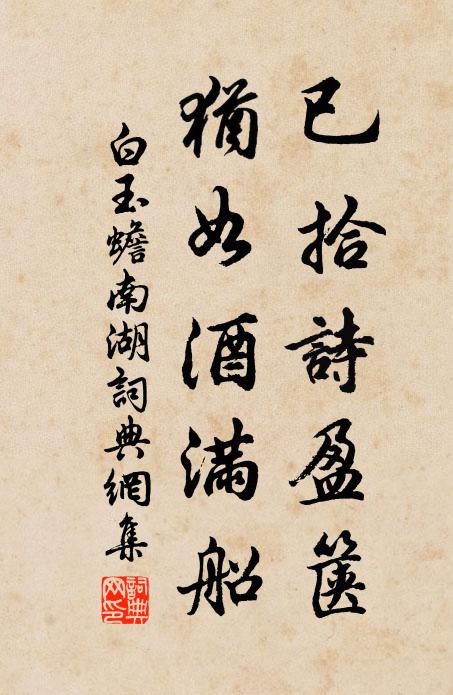 已拾詩盈篋
猶如酒滿船
白玉蟾南湖詞典網集
詞典網印